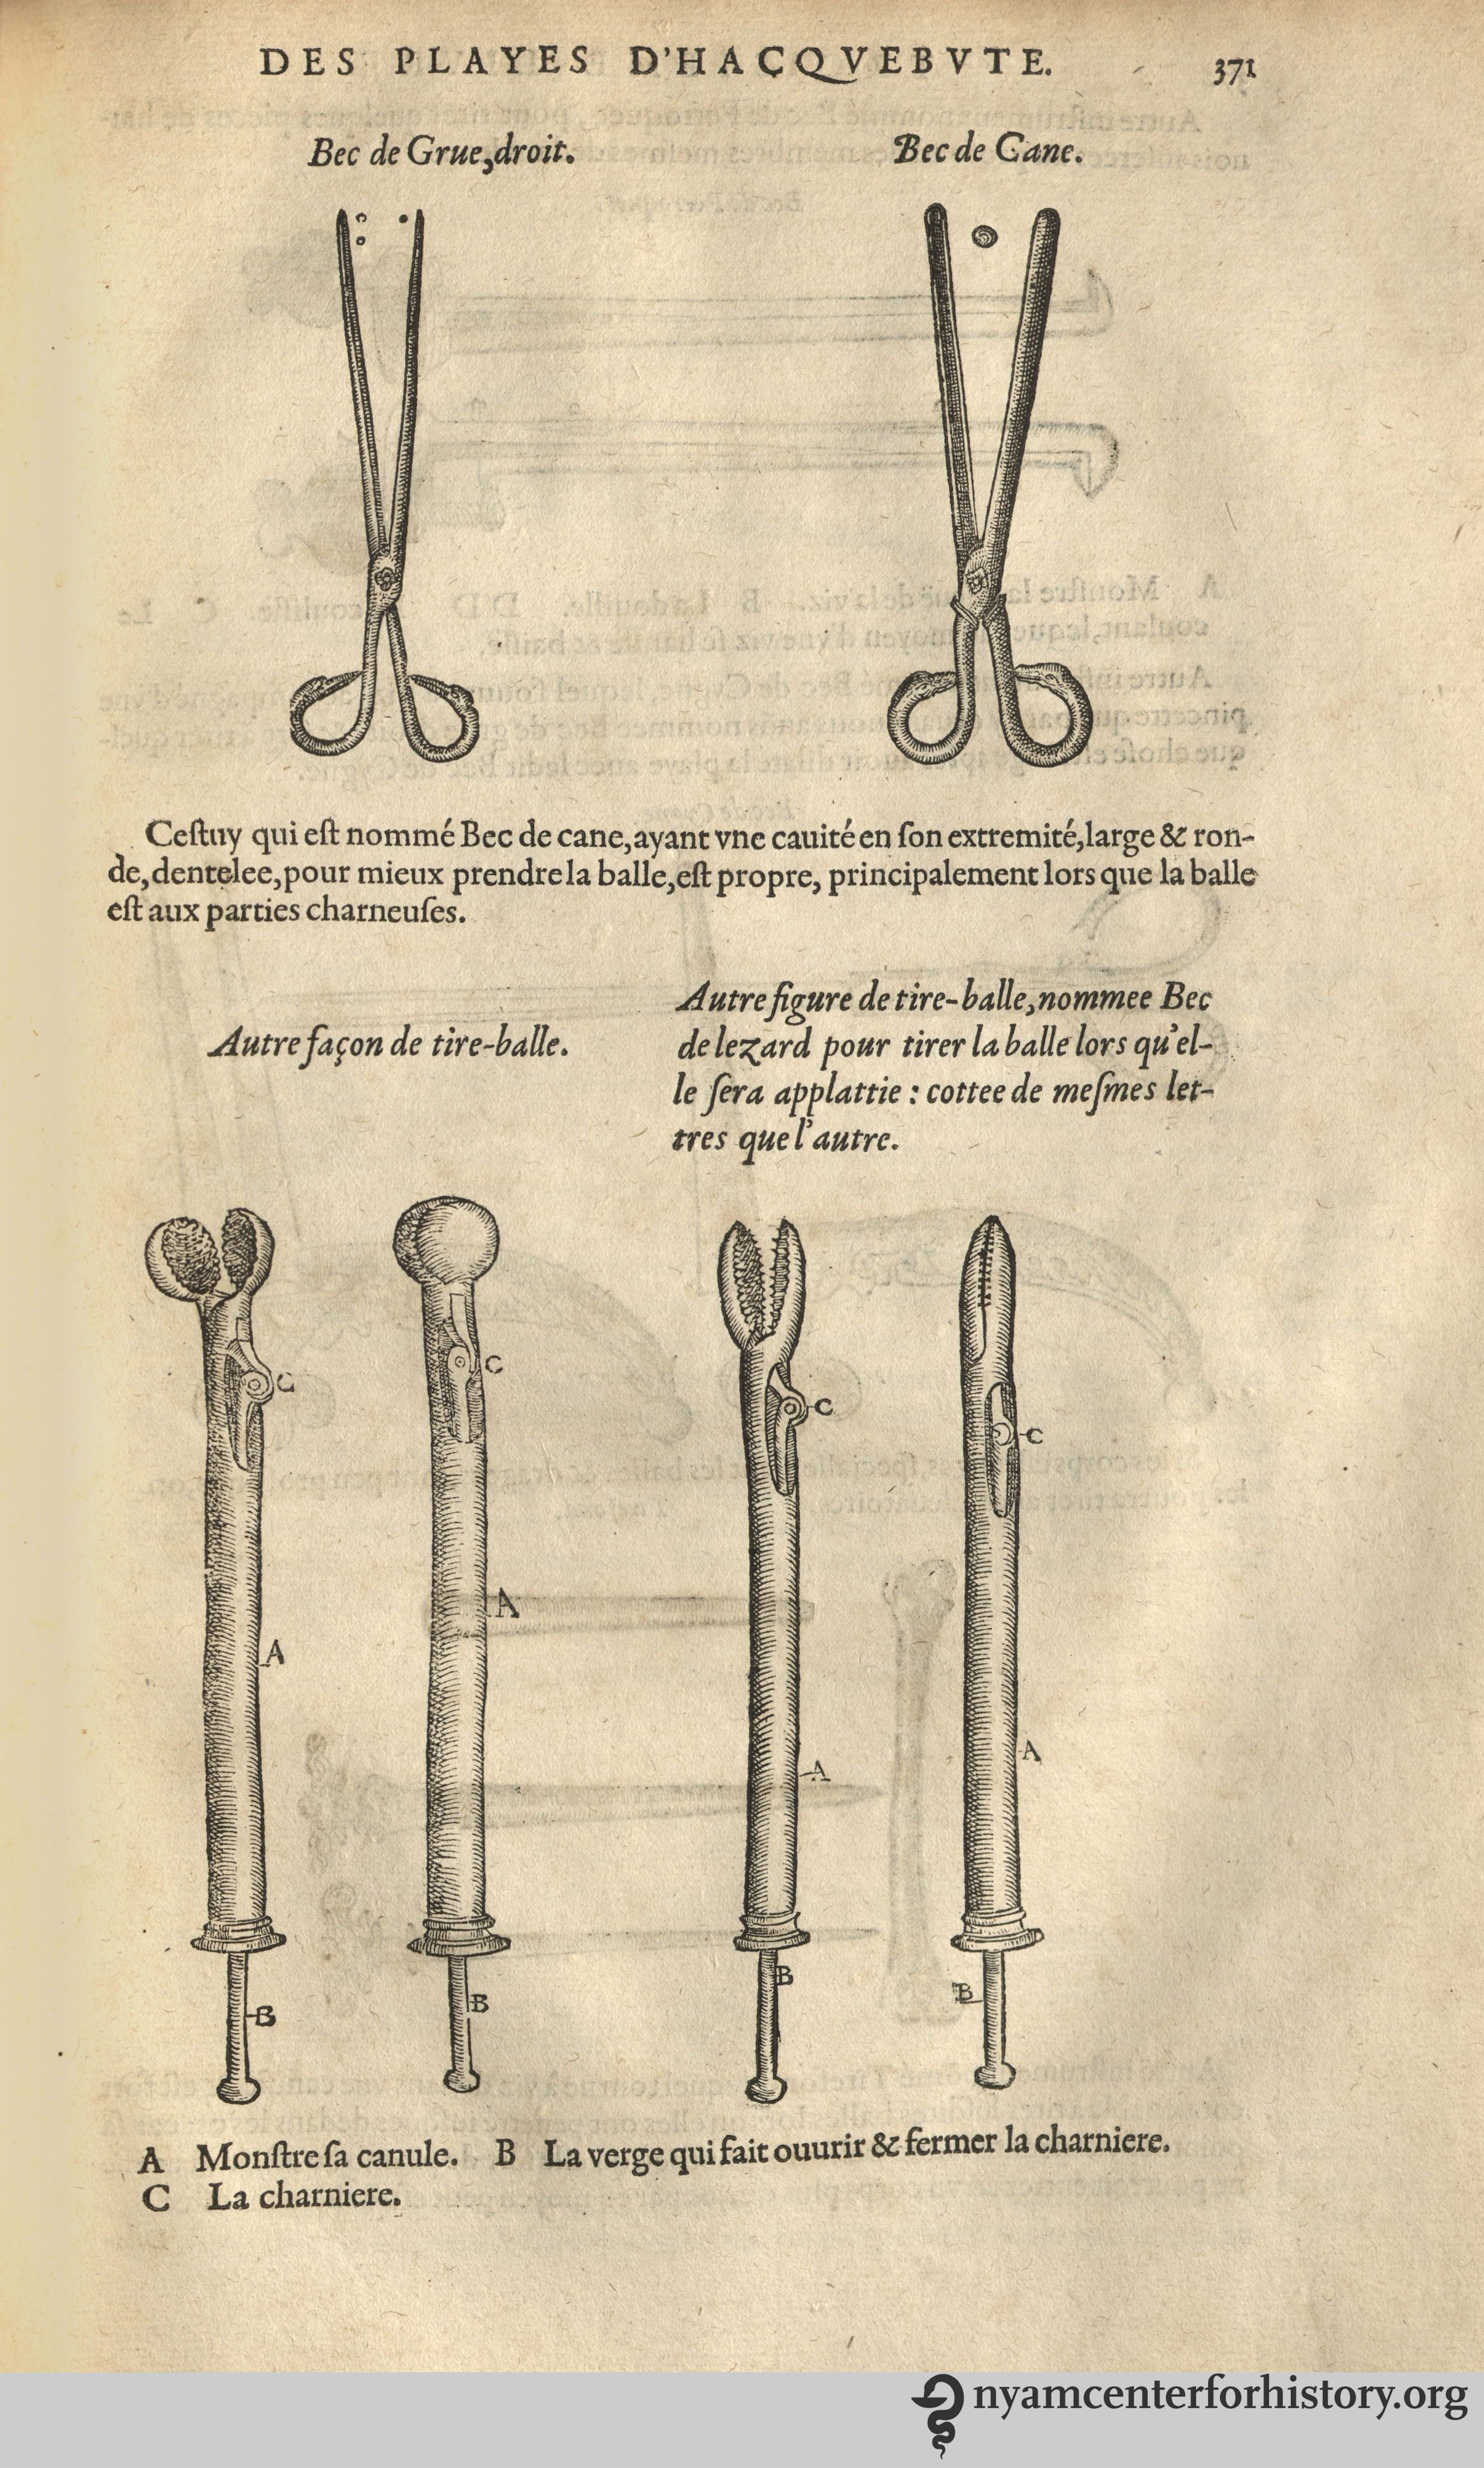 DES PLAYES D'HACQVEBVTE. 371
Bec de Grue, droit.
Bec de Cane.
Ceſtuy qui eſt nommé Bec de cane, ayant vne cauité en ſon extremité, large & ron-
de, dentelee, pour mieux prendre la balle, eſt propre, principalement lors que la balle
eſt aux parties charneuſes.
Autre façon de tire-balle.
Autre figure de tire-balle, nommee Bec
de lezard pour tirer la balle lors qu'el-
le ſera applattie : cottee de meſmes let-
tres que l'autre.
C
C
C
C
A
A
A
A
B
B
B
B
A Monſtre ſa canule. B La verge qui fait ouurir & fermer la charniere.
C La charniere.
nyamcenterforhistory.org